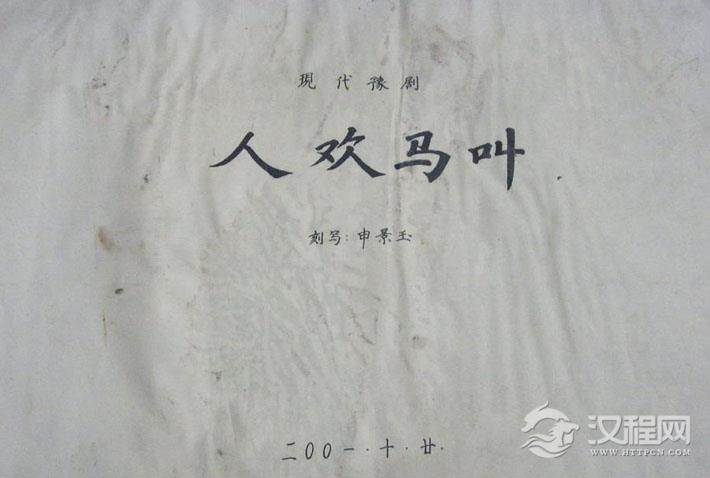 現代豫剧
人欢马叫.
刻写:申景玉
二00一·十·廿·
汉程网
WWW.HTTPCN.COM